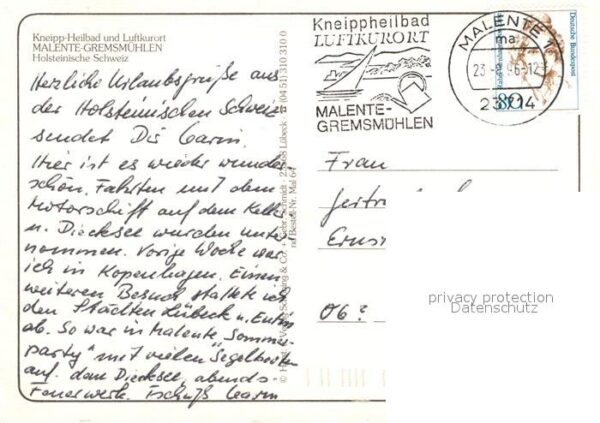 Kneipp-Heilbad und Luftkurort
MALENTE-GREMSMÜHLEN
Holsteinische Schweiz
Herzliche Urlaubsgrüße aus
der Holsteinischen Schweiz
sendet Dir Carin.
Hier ist es wieder wunder
schön. Fahrten mit dem
Motorschiff auf dem Keller
u. Dieksee wurden unter
nommen. Vorige Woche war
ich in Kopenhagen. Einen
weiteren Besuch stattete ich
den Städten Lübeck u. Eutin
ab. So war in Malente "Sommer
party" mit vielen Segelbooten
auf dem Dieksee, abends
Feuerwerk. Tschüß Carin
(04 51) 310 310 0
Kneippheilbad
LUFTKURORT
MALENTE-
GREMSMÜHLEN
MALENTE 1
ma
23714
Deutsche Bundespost
80
Frau
Ernst
privacy protection
Datenschutz